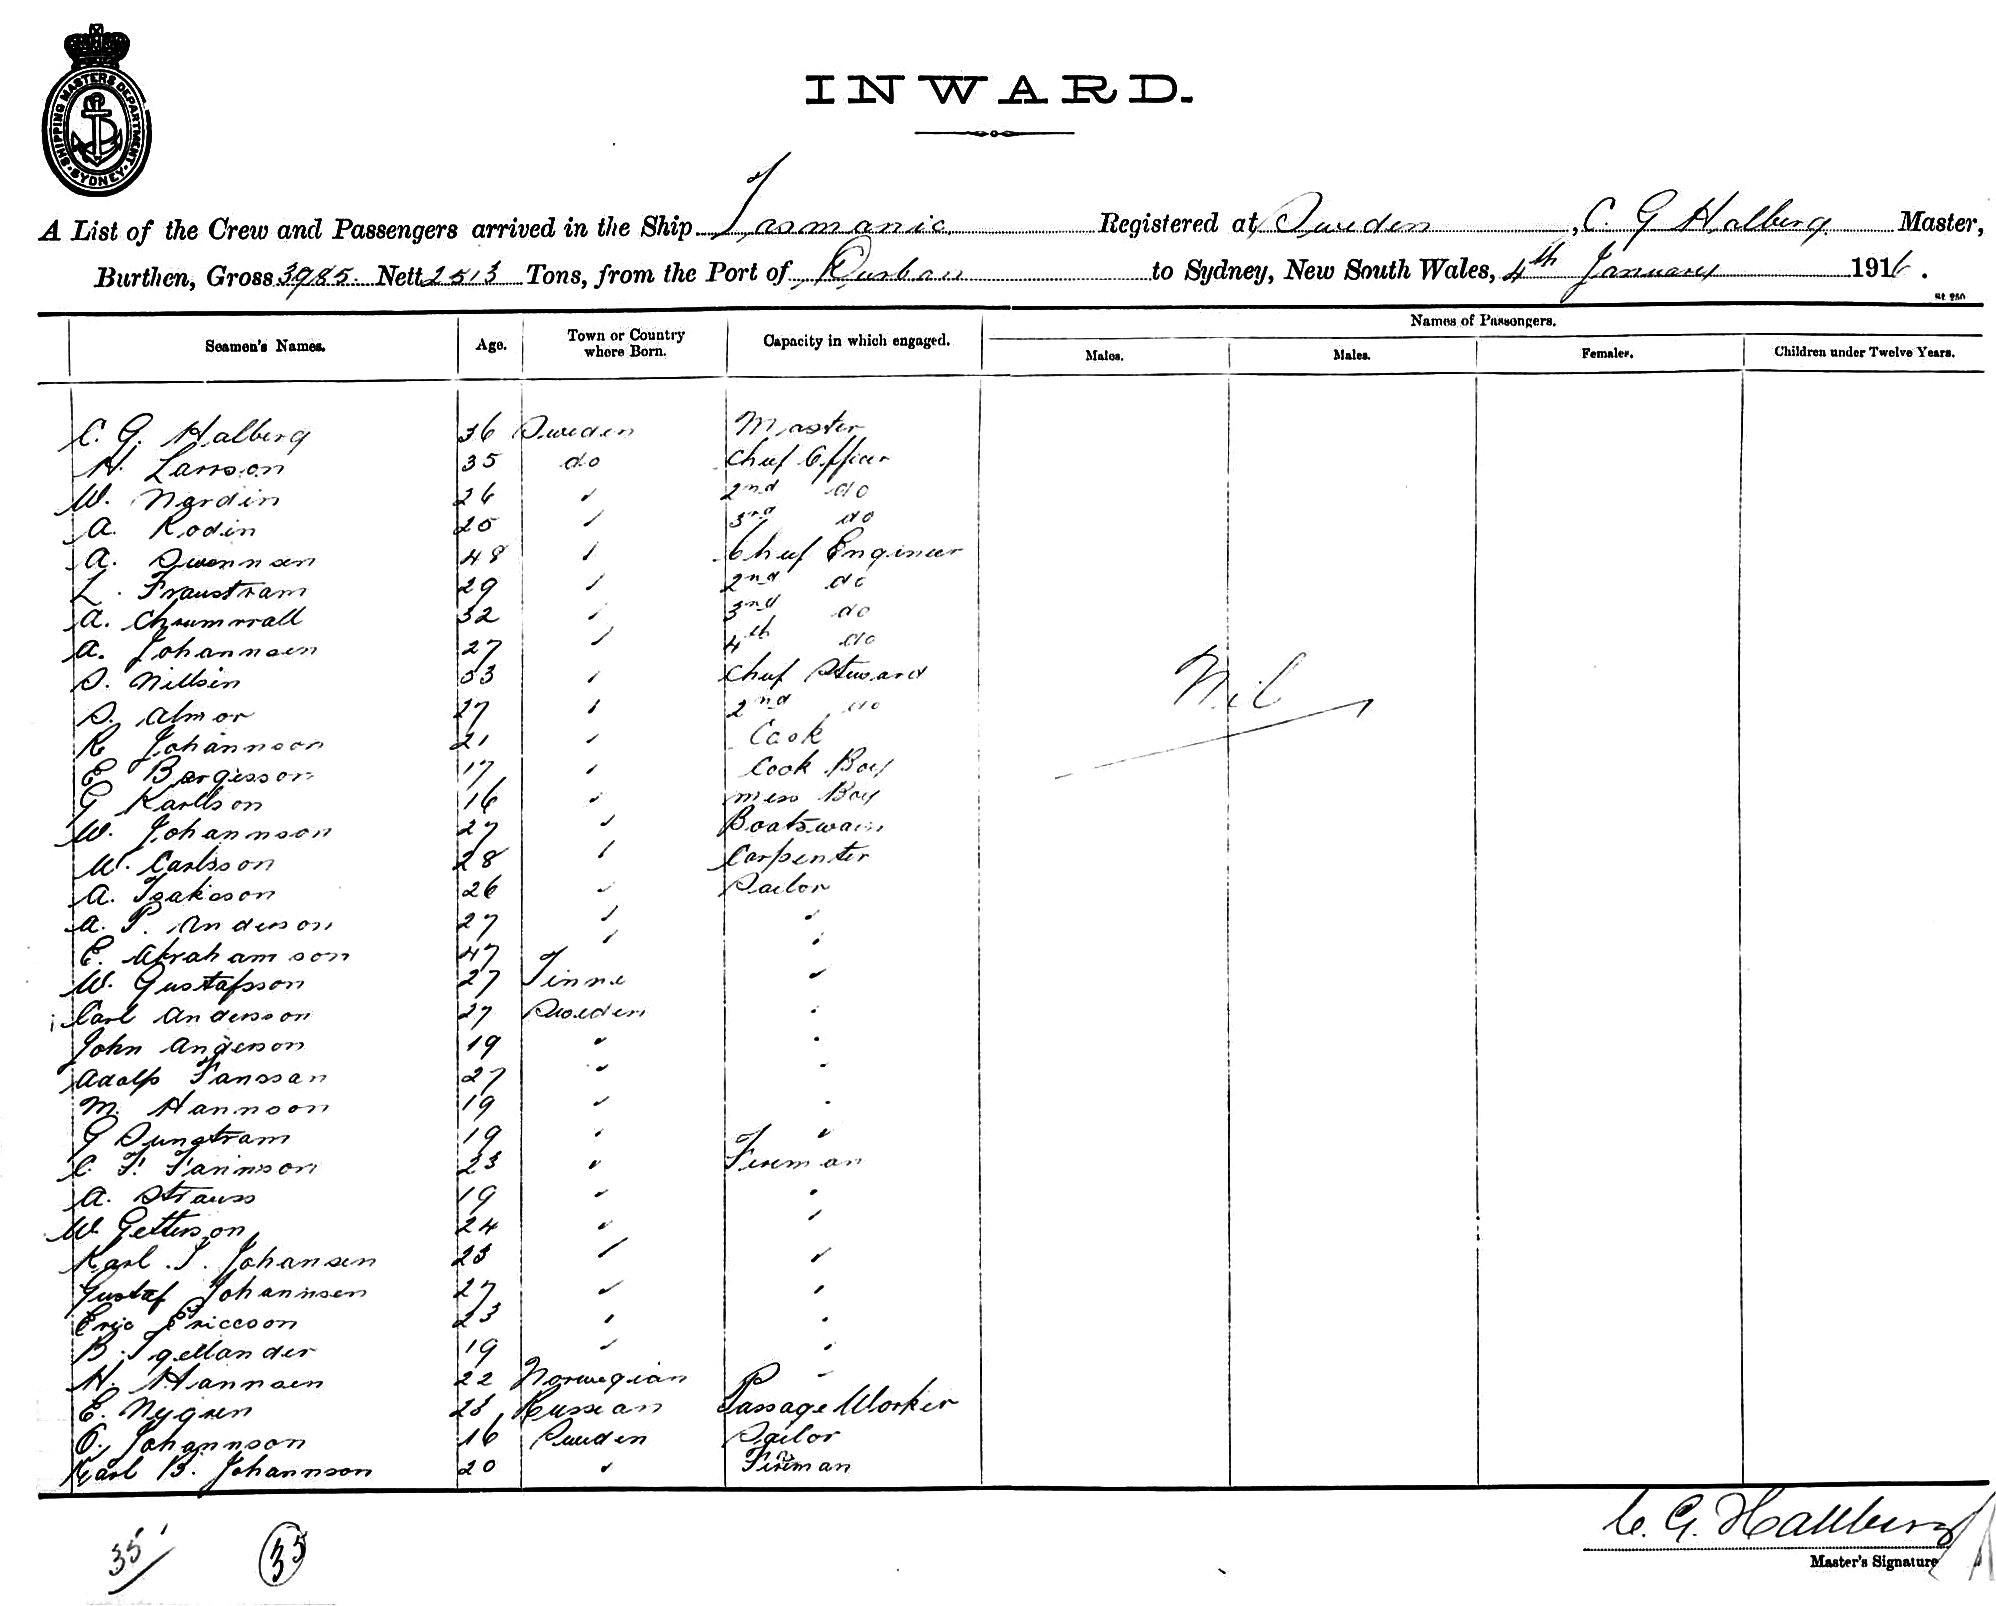 SHIPPING MASTERS DEPARTMENT SYDNEY
INWARD.
A List of the Crew and Passengers arrived in the Ship Tasmanic Registered at Sweden, C. G Halberg Master,
Burthen, Gross 3985. Nett 2513 Tons, from the Port of Durban to Sydney, New South Wales, 4th January 1916.
St 250
Seamen's Names. Age. Town or Country where Born. Capacity in which engaged. Names of Passengers.
Males. Males. Females. Children under Twelve Years.
C. G. Halberg 36 Sweden Master
H. Larsson 35 do Chief Officer
W. Nordin 26 " 2nd do
A. Rodin 25 " 3rd do
A. Swennsen 48 " Chief Engineer
L. Fraustram 29 " 2nd do
A. 32 " 3rd do
A. Johannsen 27 " 4th do
S. Nillsin 33 " Chief Steward
S. Almor 27 " 2nd do
R Johannson 21 " Cook
E Borgesson 17 " Cook Boy
G Karllson 16 " Mess Boy
W. Johannson 27 " Boatswain
W. Carlsson 28 " Carpenter
A. Isakson 26 " Sailor
A. P. Anderson 27 " "
E. Abrahamson 47 " "
W. Gustafsson 27 Finne "
Carl Andersson 27 Sweden "
John Anderson 19 " "
Adolf Janssan 27 " "
M. Hannson 19 " "
G Sungtram 19 " "
C. F. Jannson 23 " Fireman
A. Strauss 19 " "
W. Getterson 24 " "
Karl J. Johansen 23 " "
Gustaf Johannsen 27 " "
Eric Ericcson 23 " "
B. Igellander 19 " "
H. Hannsen 22 Norwegian "
E. Nygren 28 Russian Passage Worker
O. Johannson 16 Sweden Sailor
Karl B. Johannson 20 " Fireman
Nil
35 35
C. G. Hallberg
Master's Signature